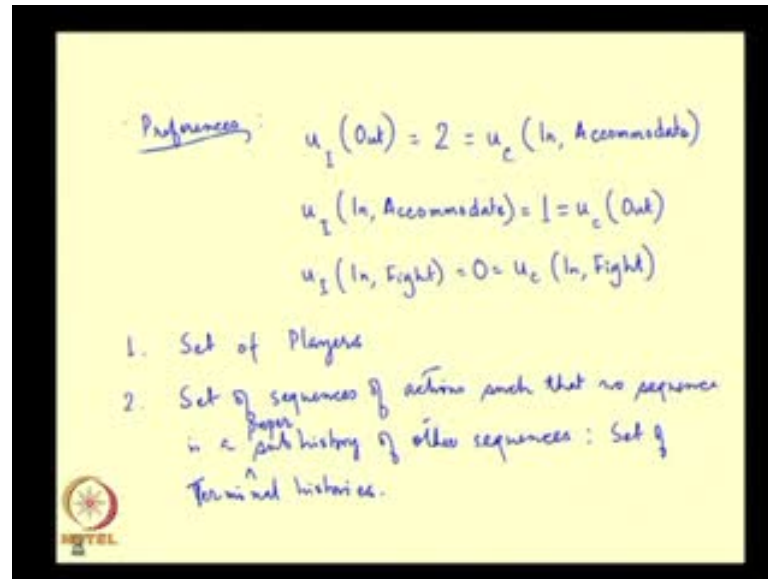 Preferences: u_I (Out) = 2 = u_c (In, Accommodate)
u_I (In, Accommodate) = 1 = u_c (Out)
u_I (In, Fight) = 0 = u_c (In, Fight)
1. Set of Players
2. Set of sequences of actions such that no sequence
is a proper subhistory of other sequences : Set of
Terminal histories.
NPTEL